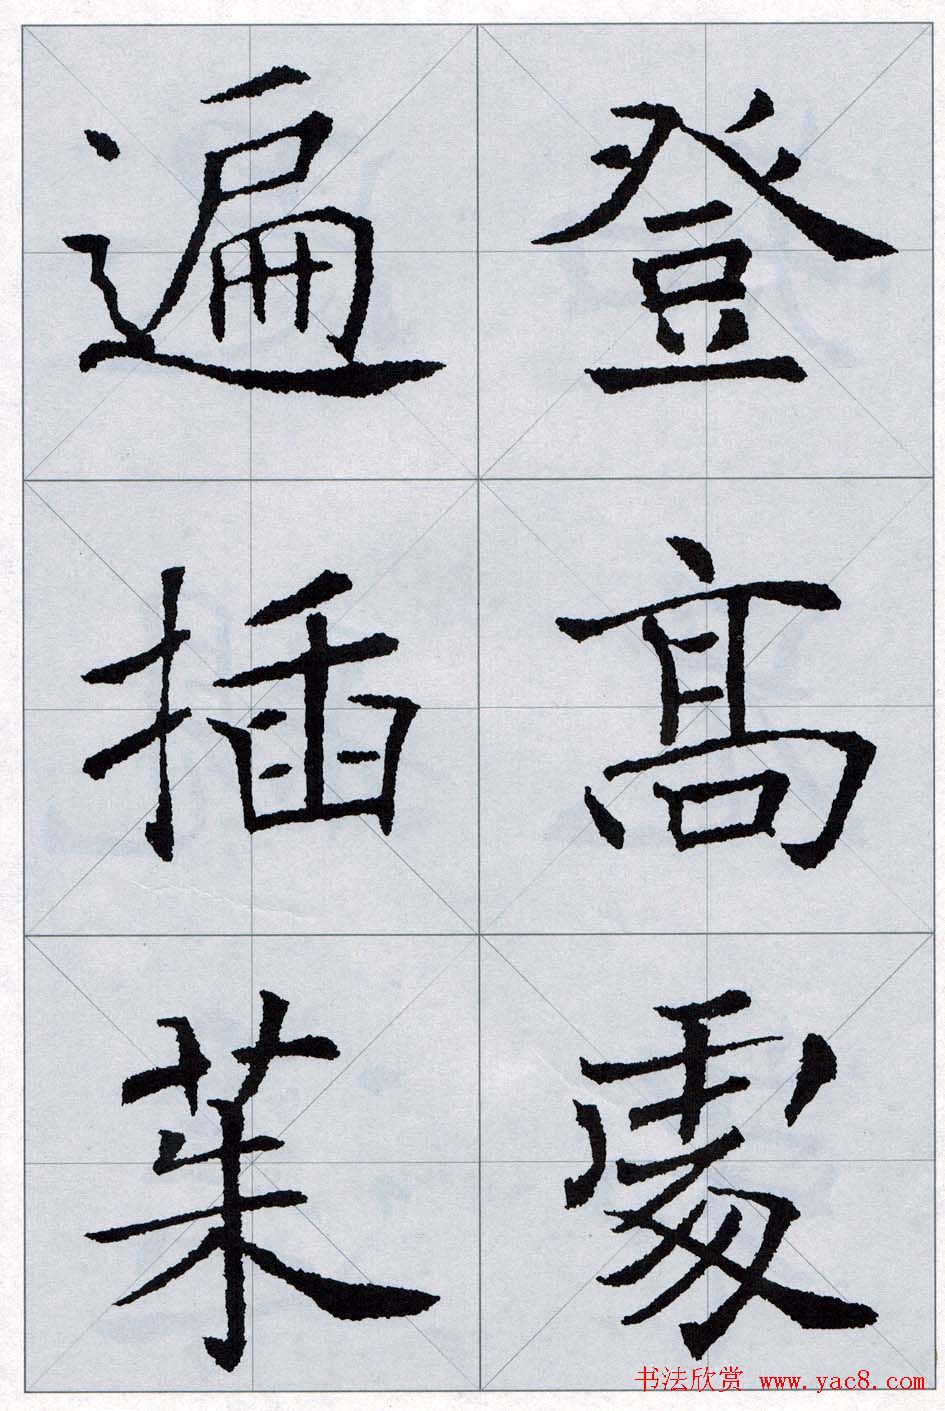 登髙處
遍插茱
书法欣赏 www.yac8.com